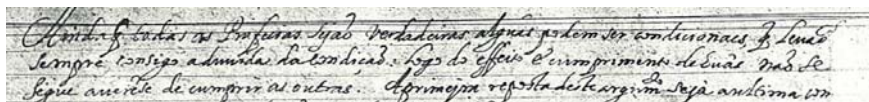 Ainda q̃ todas as Profecias sejaõ verdadeiras, algũas podem ser condicionaes, q̃ levaõ
sempre consigo a duvida da condicaõ: logo do effeito e cumprimento de huãs naõ se
segue averẽse de cumprir as outras. A primeyra reposta deste argum.to seja a ultima con